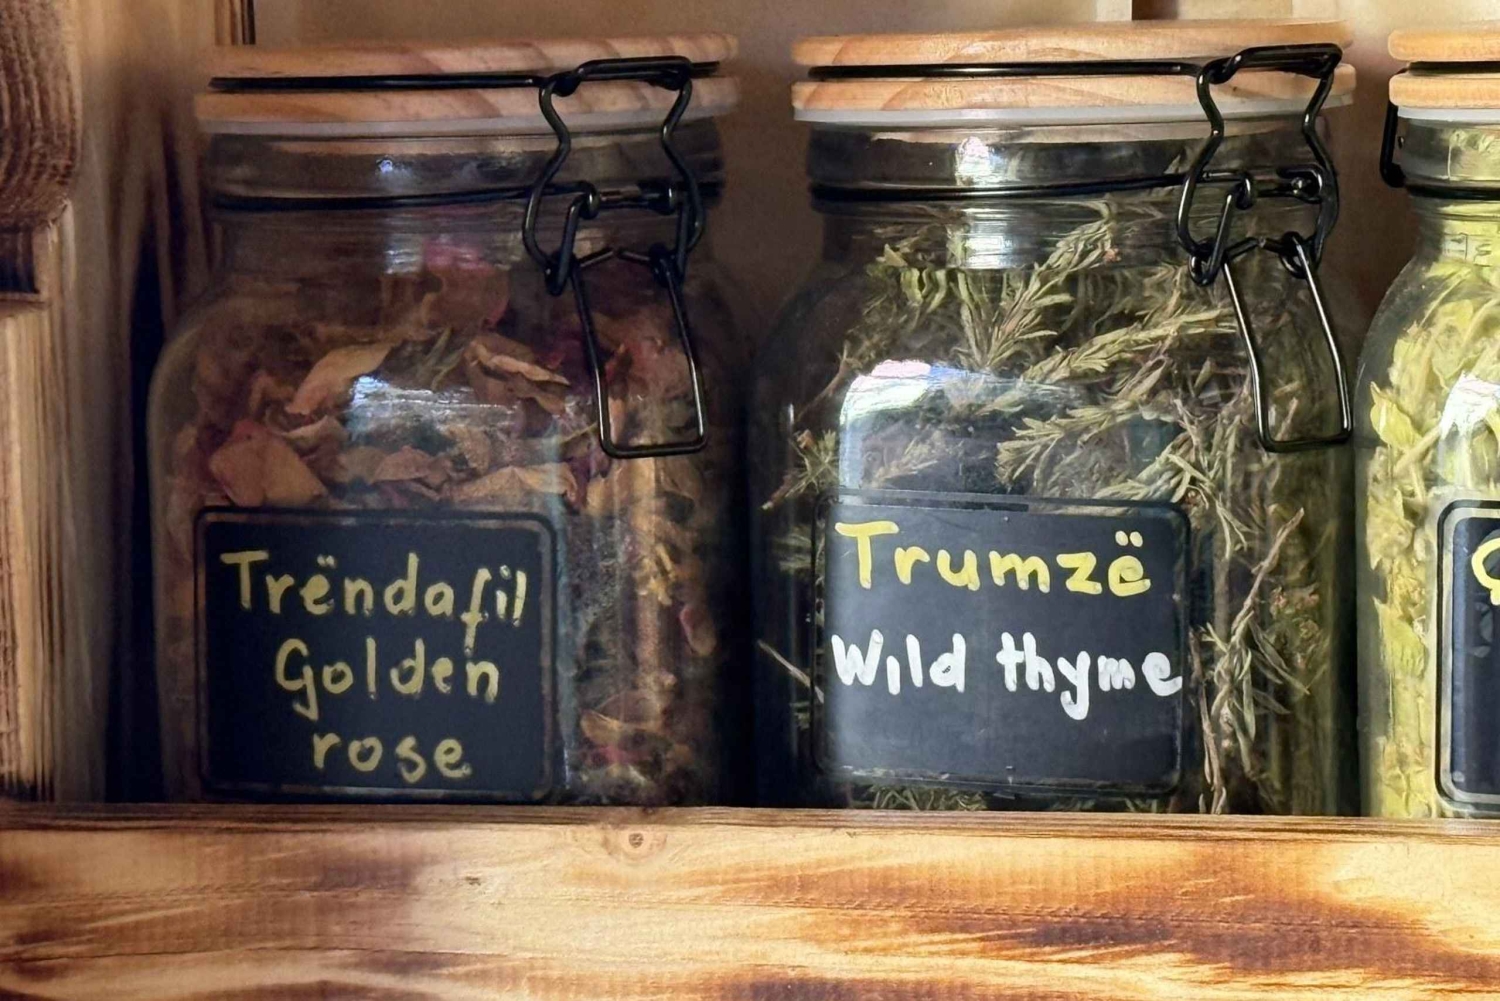 Trëndafil
Golden
rose
Trumzë
Wild thyme